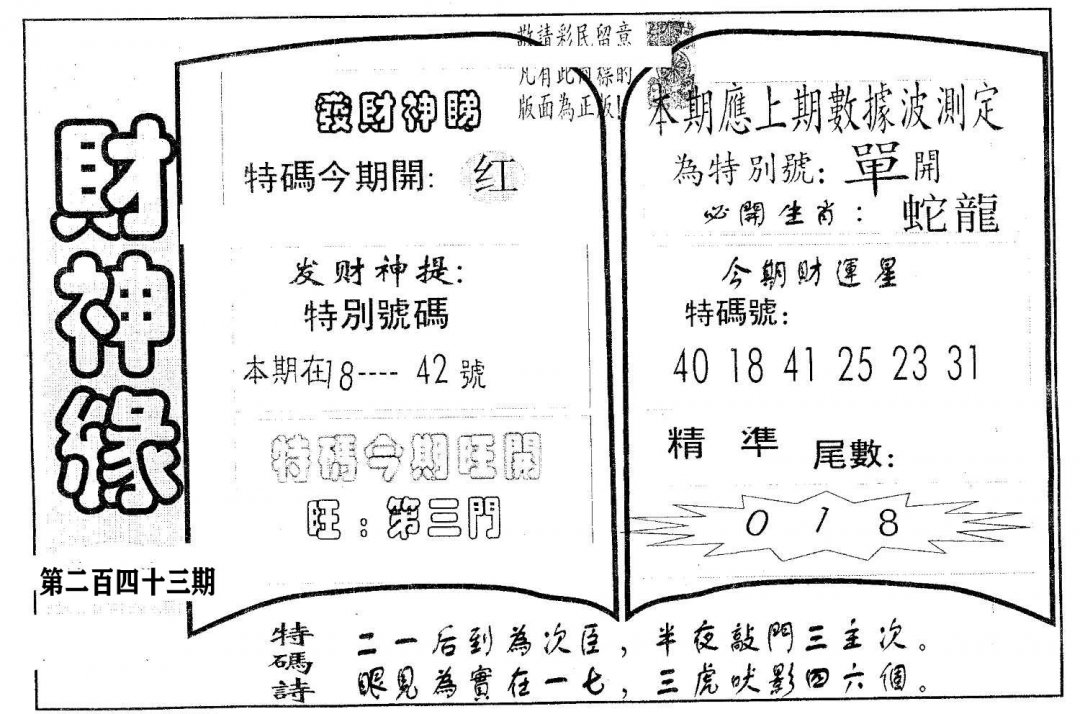 財神緣
第二百四十三期
敬請彩民留意
凡有此同樣的
版面為正版!
發財神睇
特碼今期開: 红
发财神提:
特別號碼
本期在18---- 42 號
特碼今期旺開
旺:第三門
本期應上期數據波測定
為特別號: 單開
必開生肖: 蛇龍
今期財運星
特碼號:
40 18 41 25 23 31
精 準 尾數:
0 1 8
特碼詩
二一后到為次臣,半夜敲門三主次。
眼見為實在一七,三虎吠影四六個。